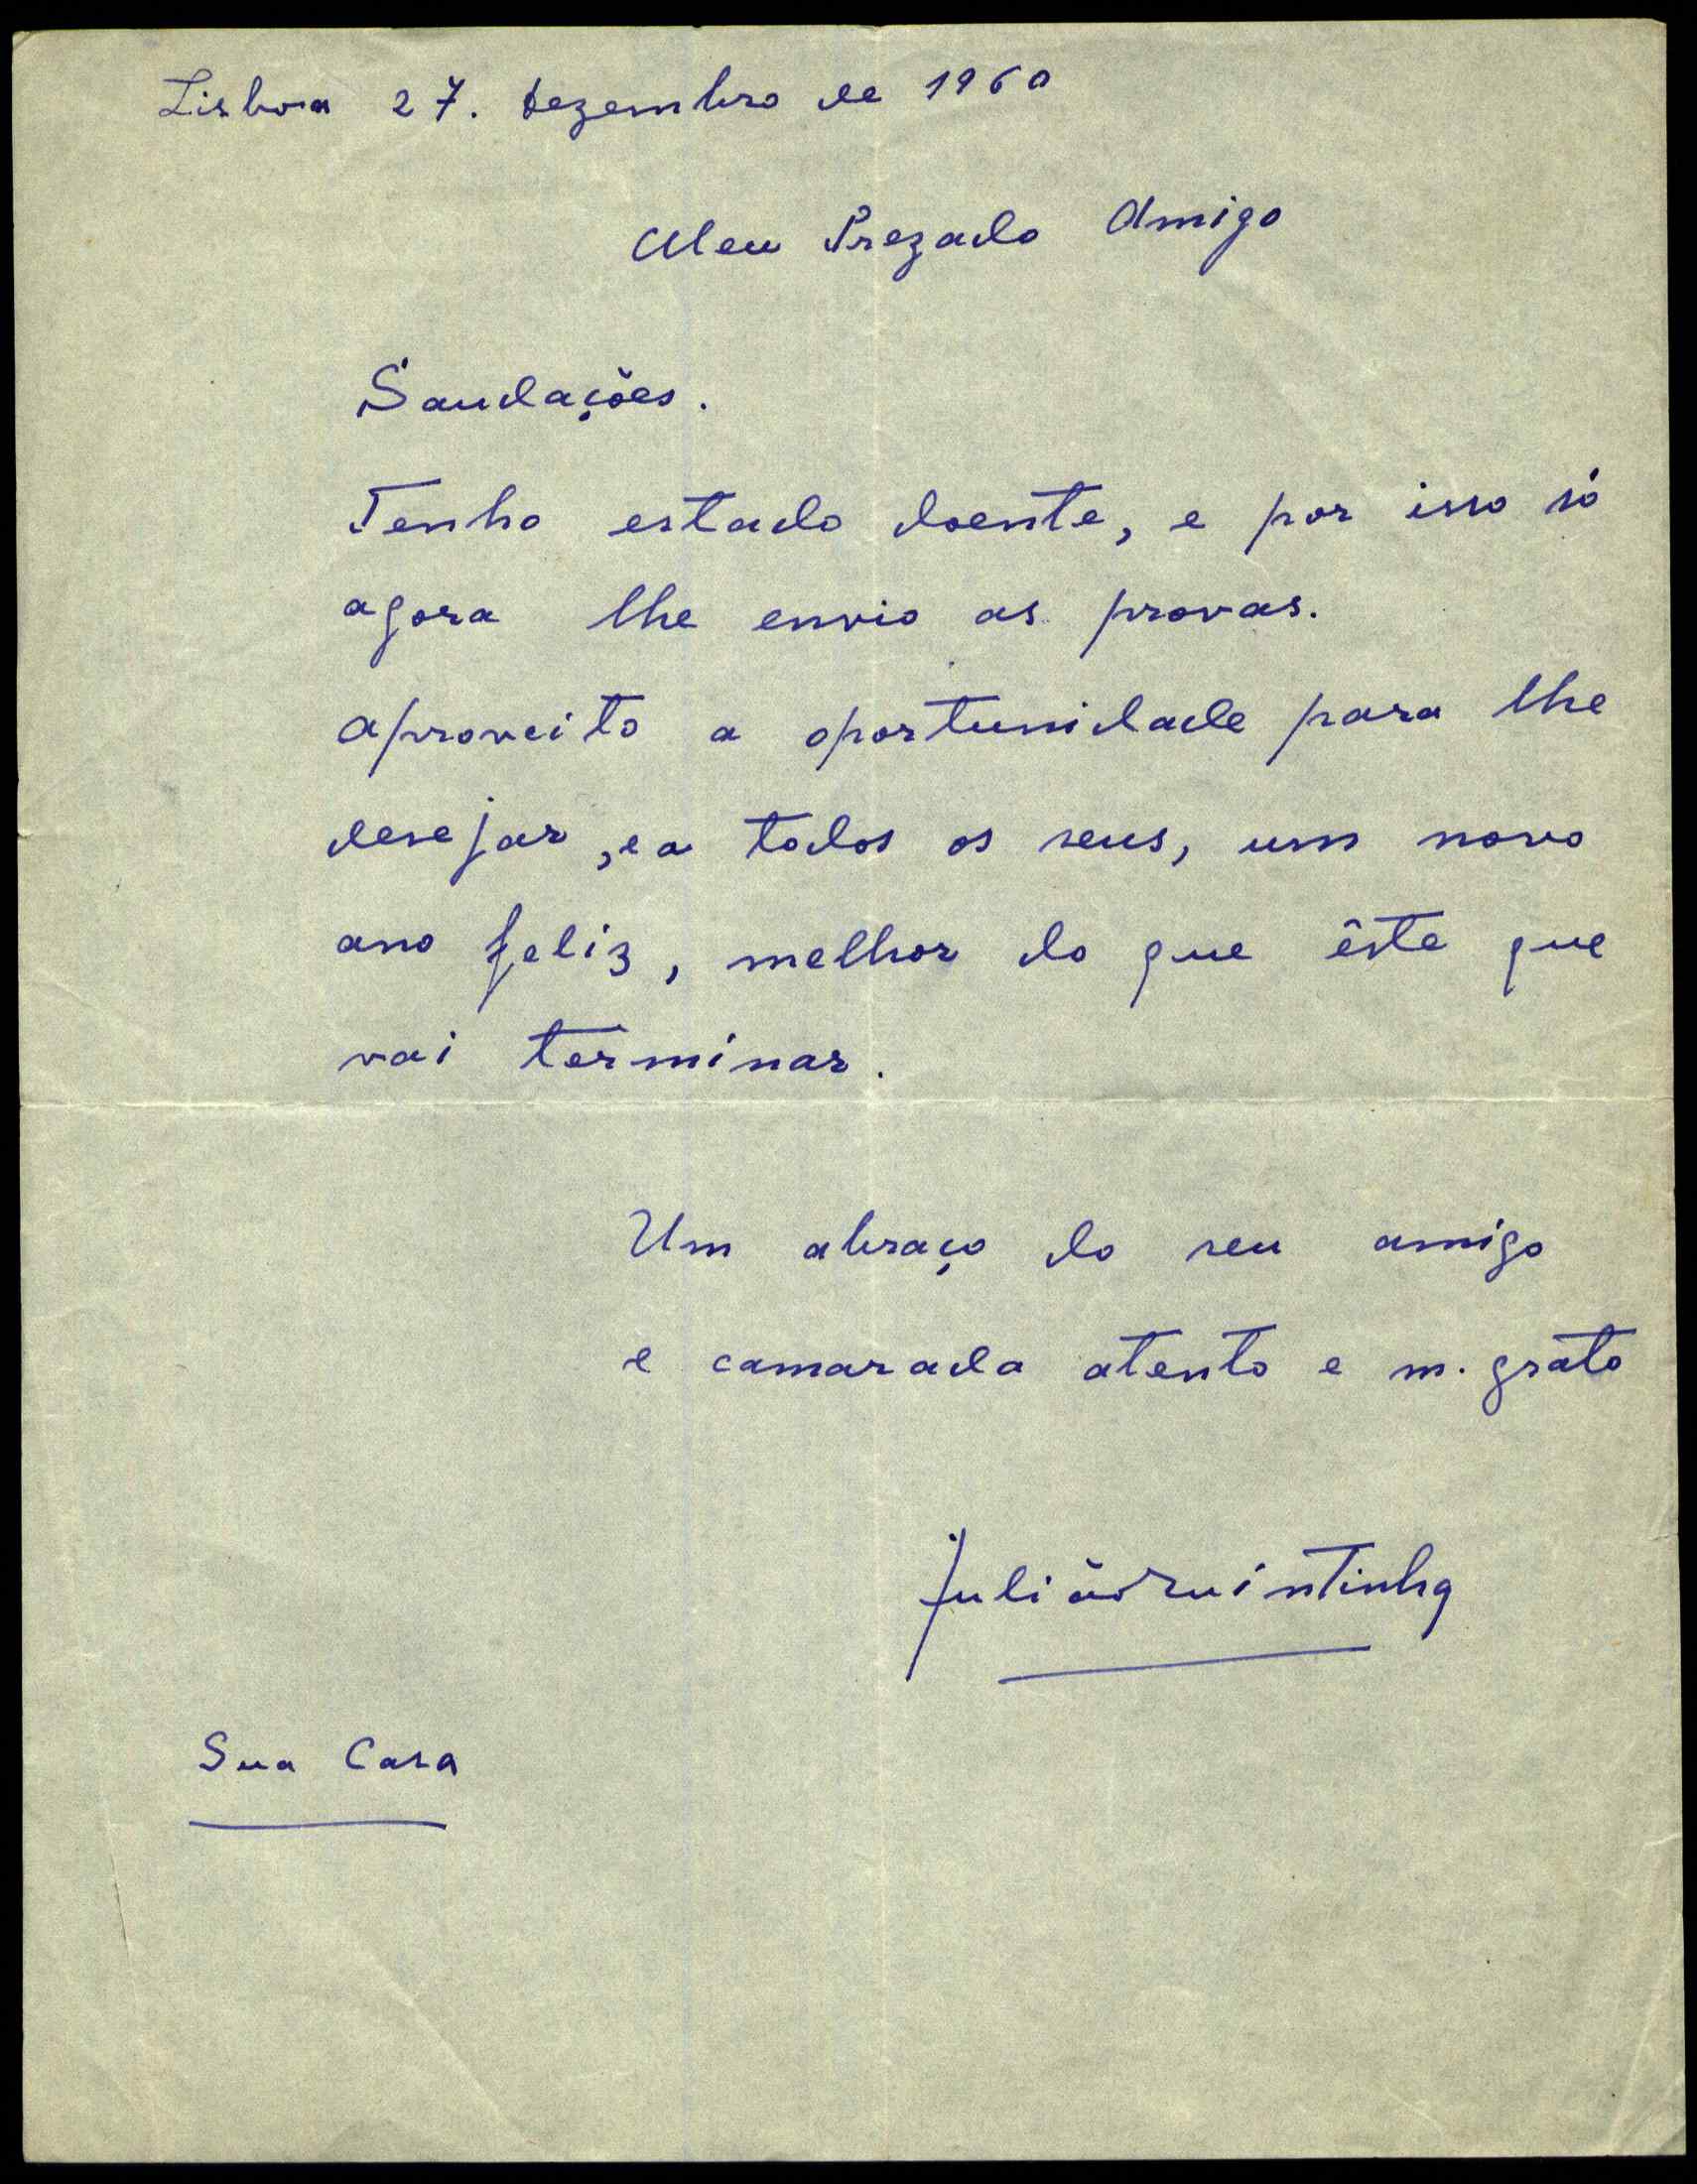 Lisboa 27. Dezembro de 1960
Meu Prezado Amigo
Saudações.
Tenho estado doente, e por isso só
agora lhe envio as provas.
Aproveito a oportunidade para lhe
desejar, e a todos os seus, um novo
ano feliz, melhor do que êste que
vai terminar.
Um abraço do seu amigo
e camarada atento e m. grato
Julião Quintinha
Sua Casa